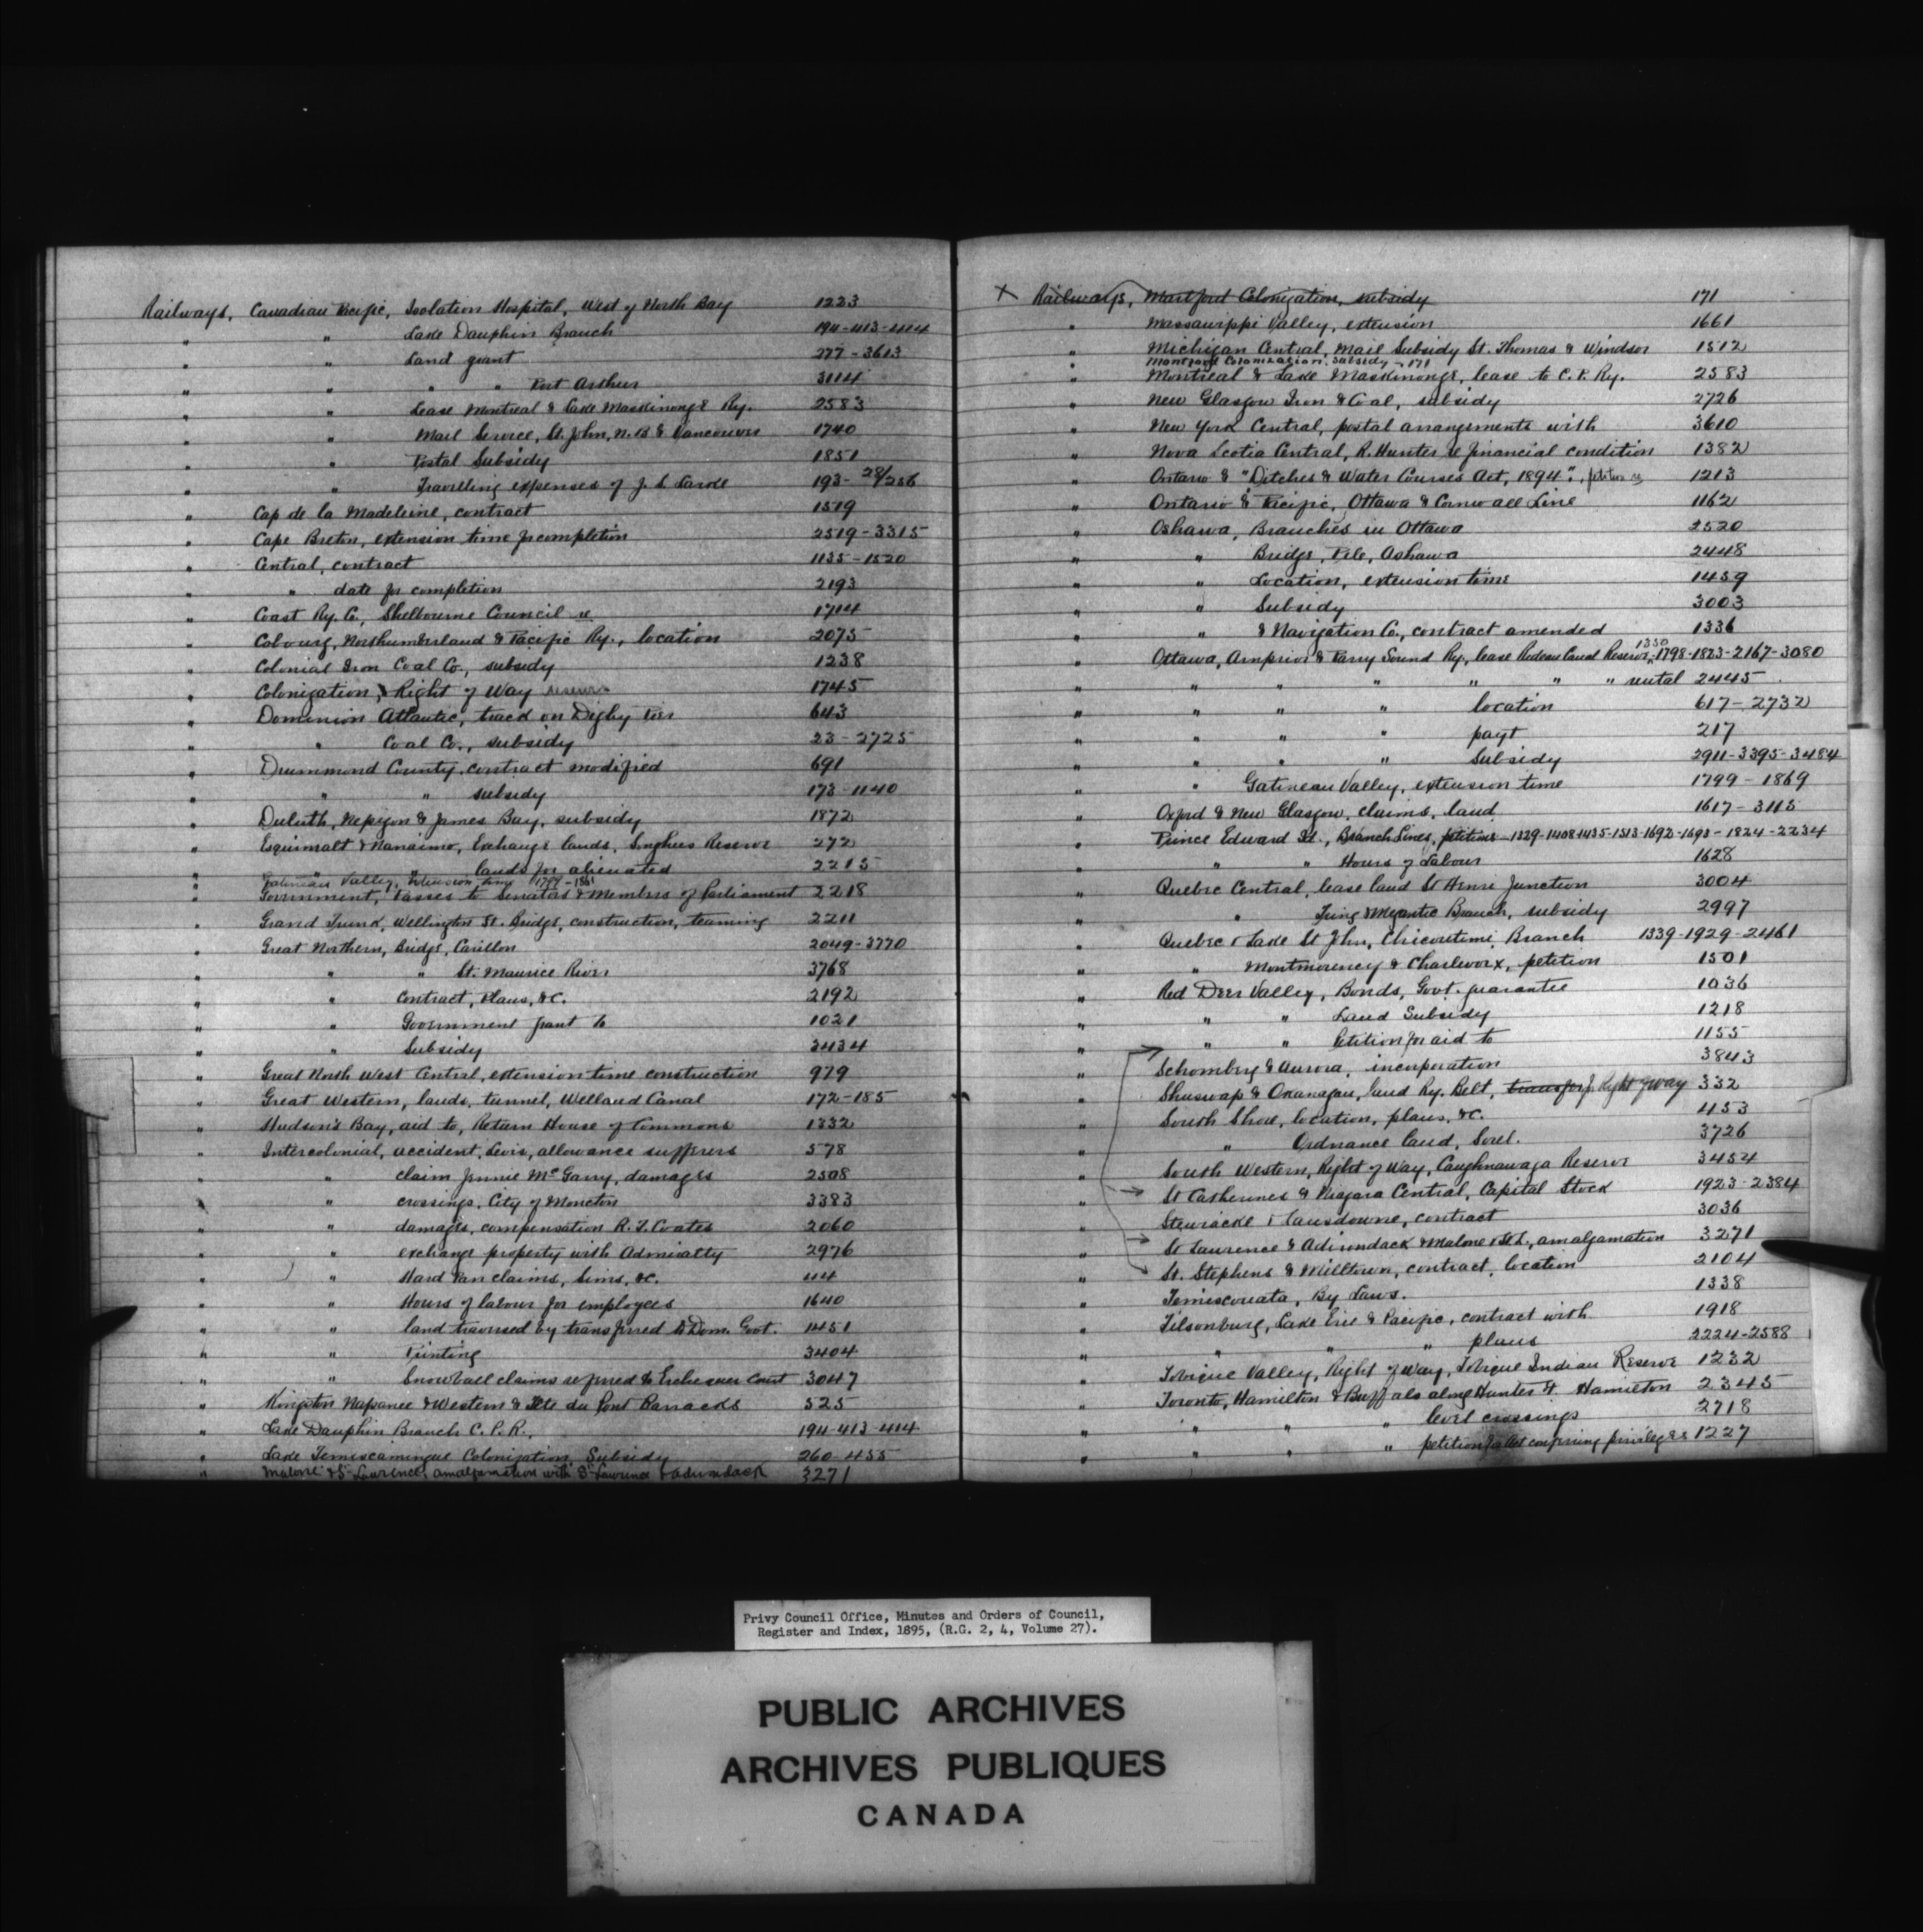 Railways, Canadian Pacific, Isolation Hospital, West of North Bay 1223
" " Lake Dauphin Branch 194-413-414
" " Land grant 277-3613
" " " " Port Arthur 3114
" " Lease Montreal & Lake Maskinonge Ry. 2583
" " Mail Service, St. John, N.B & Vancouver 1740
" " Postal Subsidy 1851
" " Travelling expenses of J. L. 193- 28/256
" Cap de la Madeleine, contract 1519
" Cape Breton, extension time for completion 2519-3315
" Central, contract 1135-1520
" " date for completion 2193
" Coast Ry. Co., Shelbourne Council re 1714
" Cobourg, Northumberland & Pacific Ry., location 2075
" Colonial Iron Coal Co., subsidy 1238
" Colonization, Right of Way 1745
" Dominion Atlantic, track on Digby Pier 643
" " Coal Co., subsidy 23-2725
" Drummond County, contract modified 691
" " " subsidy 173-1140
" Duluth, Nepigon & James Bay, subsidy 1872
" Esquimalt & Nanaimo, Exchange lands, Songhees Reserve 272
" " " lands for alienated 2215
" Gatineau Valley, extension time 1799-1861
" Government, Passes to Senators & Members of Parliament 2218
" Grand Trunk, Wellington St. Bridge, construction, teaming 2211
" Great Northern, Bridge, Carillon 2049-3770
" " " St. Maurice River 3768
" " Contract, Plans, &c. 2192
" " Government grant to 1021
" " Subsidy 3434
" Great North West Central, extension time construction 979
" Great Western, lands, tunnel, Welland Canal 172-185
" Hudson's Bay, aid to, Return House of Commons 1332
" Intercolonial, accident, Levis, allowance sufferers 578
" " claim Jennie McGarry, damages 2508
" " crossings, City of Moncton 3383
" " damages, compensation R. T. Coates 2060
" " exchange property with Admiralty 2976
" " Hard Pan claims, Sims, &c. 44
" " Hours of labour for employees 1640
" " land traversed by transferred to Dom. Govt. 1451
" " Printing 3404
" " Snowball claims referred to Exchequer Court 3047
" Kingston Napanee & Western & Tete du Pont Barracks 525
" Lake Dauphin Branch C. P. R., 194-413-414
" Lake Temiscamingue Colonization Subsidy 260-455
" Malone & St Lawrence, amalgamation with St Lawrence & Adirondack 3271
X Railways, Montford Colonization, subsidy 171
" Massawippi Valley, extension 1661
" Michigan Central, Mail Subsidy St. Thomas & Windsor 1512
Montford Colonization. Subsidy - 171
" Montreal & Lake Maskinonge, lease to C. P. Ry. 2583
" New Glasgow Iron & Coal, subsidy 2726
" New York Central, postal arrangements with 3610
" Nova Scotia Central, R. Hunter re financial condition 1382
" Ontario & "Ditches & Water Courses Act, 1894", petition re 1213
" Ontario & Pacific, Ottawa & Cornwall Line 1162
" Oshawa, Branches in Ottawa 2520
" " Bridge, Pile, Oshawa 2448
" " Location, extension time 1459
" " Subsidy 3003
" " & Navigation Co., contract amended 1336
" Ottawa, Arnprior & Parry Sound Ry, lease Rideau Canal Reserve, 1350-1798-1823-2167-3080
" " " " " " " rental 2445
" " " " location 617-2732
" " " " payt 217
" " " " Subsidy 2911-3395-3484
" " Gatineau Valley, extension time 1799-1869
" Oxford & New Glasgow, claims, land 1617-3115
" Prince Edward Isl., Branch Lines, petitions 1329-1408-1435-1513-1692-1693-1824-2234
" " " Hours of Labour 1628
" Quebec Central, lease land St Henri Junction 3004
" " Tring & Megantic Branch, subsidy 2997
" Quebec & Lake St John, Chicoutimi Branch 1339-1929-2461
" " Montmorency & Charlevoix, petition 1501
" Red Deer Valley, Bonds, Govt. guarantee 1036
" " " Land Subsidy 1218
" " " Petition for aid to 1155
" Schomberg & Aurora, incorporation 3843
" Shuswap & Okanagan, land Ry. Belt, transfer for Right of Way 332
" South Shore, location, plans, &c. 453
" " Ordnance land, Sorel. 3726
" South Western, Right of Way, Caughnawaga Reserve 3454
" St Catherines & Niagara Central, Capital Stock 1923-2384
" Stewiacke & Lansdowne, contract 3036
" St Lawrence & Adirondack & Malone & St L., amalgamation 3271
" St. Stephens & Milltown, contract, location 2104
" Temiscouata, By Laws. 1338
" Tilsonburg, Lake Erie & Pacific, contract with 1918
" " " " plans 2224-2588
" Tobique Valley, Right of Way, Tobique Indian Reserve 1232
" Toronto, Hamilton & Buffalo along Hunter St. Hamilton 2345
" " " " level crossings 2718
" " " " petition for Act conferring privileges 1227
Privy Council Office, Minutes and Orders of Council,
Register and Index, 1895, (R.G. 2, 4, Volume 27).
PUBLIC ARCHIVES
ARCHIVES PUBLIQUES
CANADA